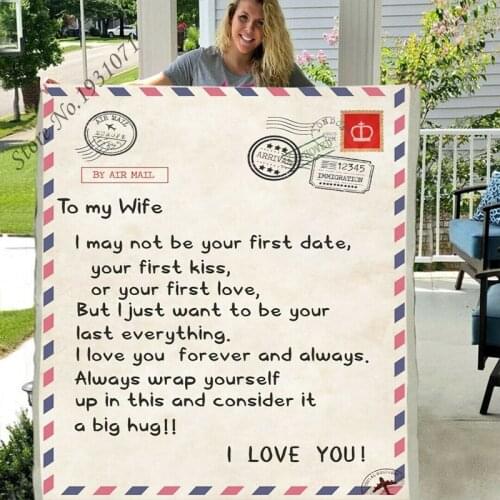 Store No.19310071
AIR MAIL
LONDON
ARRIVAL
12345
IMMIGRATION
BY AIR MAIL
To my Wife
I may not be your first date,
your first kiss,
or your first love,
But I just want to be your
last everything.
I love you forever and always.
Always wrap yourself
up in this and consider it
a big hug!!
I LOVE YOU!